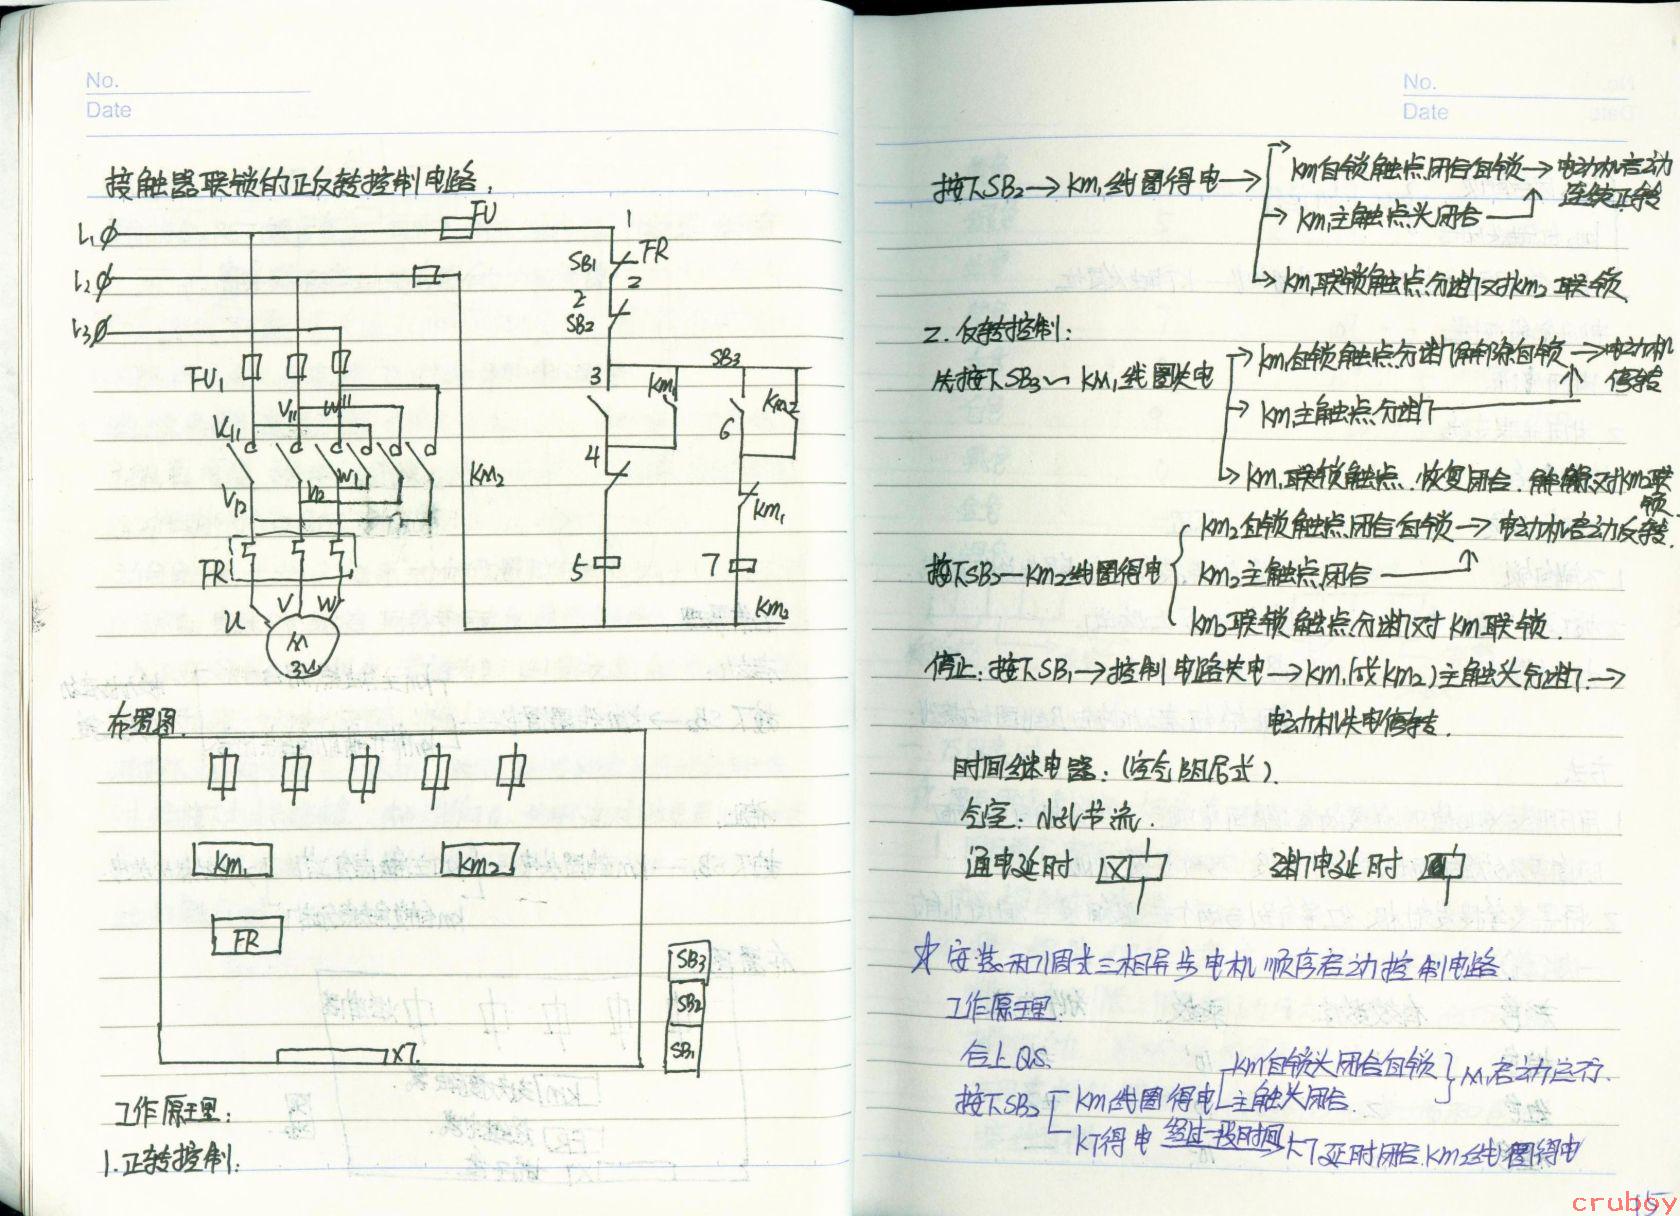 No.
Date
接触器联锁的正反转控制电路.
L1
FU
1
L2
SB1
FR
2
L3
2
SB2
FU1
3
SB3
KM1
KM2
V11
W11
U11
4
6
KM2
V12
W1
KM1
FR
5
7
U
V
W
KM2
M
3~
布置图.
KM1
KM2
FR
SB3
SB2
SB1
XT.
工作原理:
1.正转控制:
No.
Date
按下SB2→KM1线圈得电→
KM自锁触点闭合自锁→电动机启动
连续正转
KM1主触点头闭合
KM1联锁触点分断对KM2联锁
2.反转控制:
先按下SB3—KM1线圈失电
KM1自锁触点分断解除自锁→电动机
停转
KM1主触点分断
KM1联锁触点.恢复闭合.解除对KM2联
锁.
按下SB3—KM2线圈得电
KM2自锁触点闭合自锁→电动机启动反转.
KM2主触点闭合
KM2联锁触点分断对KM联锁.
停止:按下SB1→控制电路失电→KM1(或KM2)主触头分断→
电动机失电停转.
时间继电器:(空气阻尼式).
气室:小孔节流.
通电延时
断电延时
☆安装和调试三相异步电机顺序启动控制电路.
工作原理
合上QS.
按下SB2
KM线圈得电
KM自锁头闭合自锁
主触头闭合.
M1启动运行.
KT得电 经过一段时间 KT延时闭合.KM线圈得电
15
cruboy